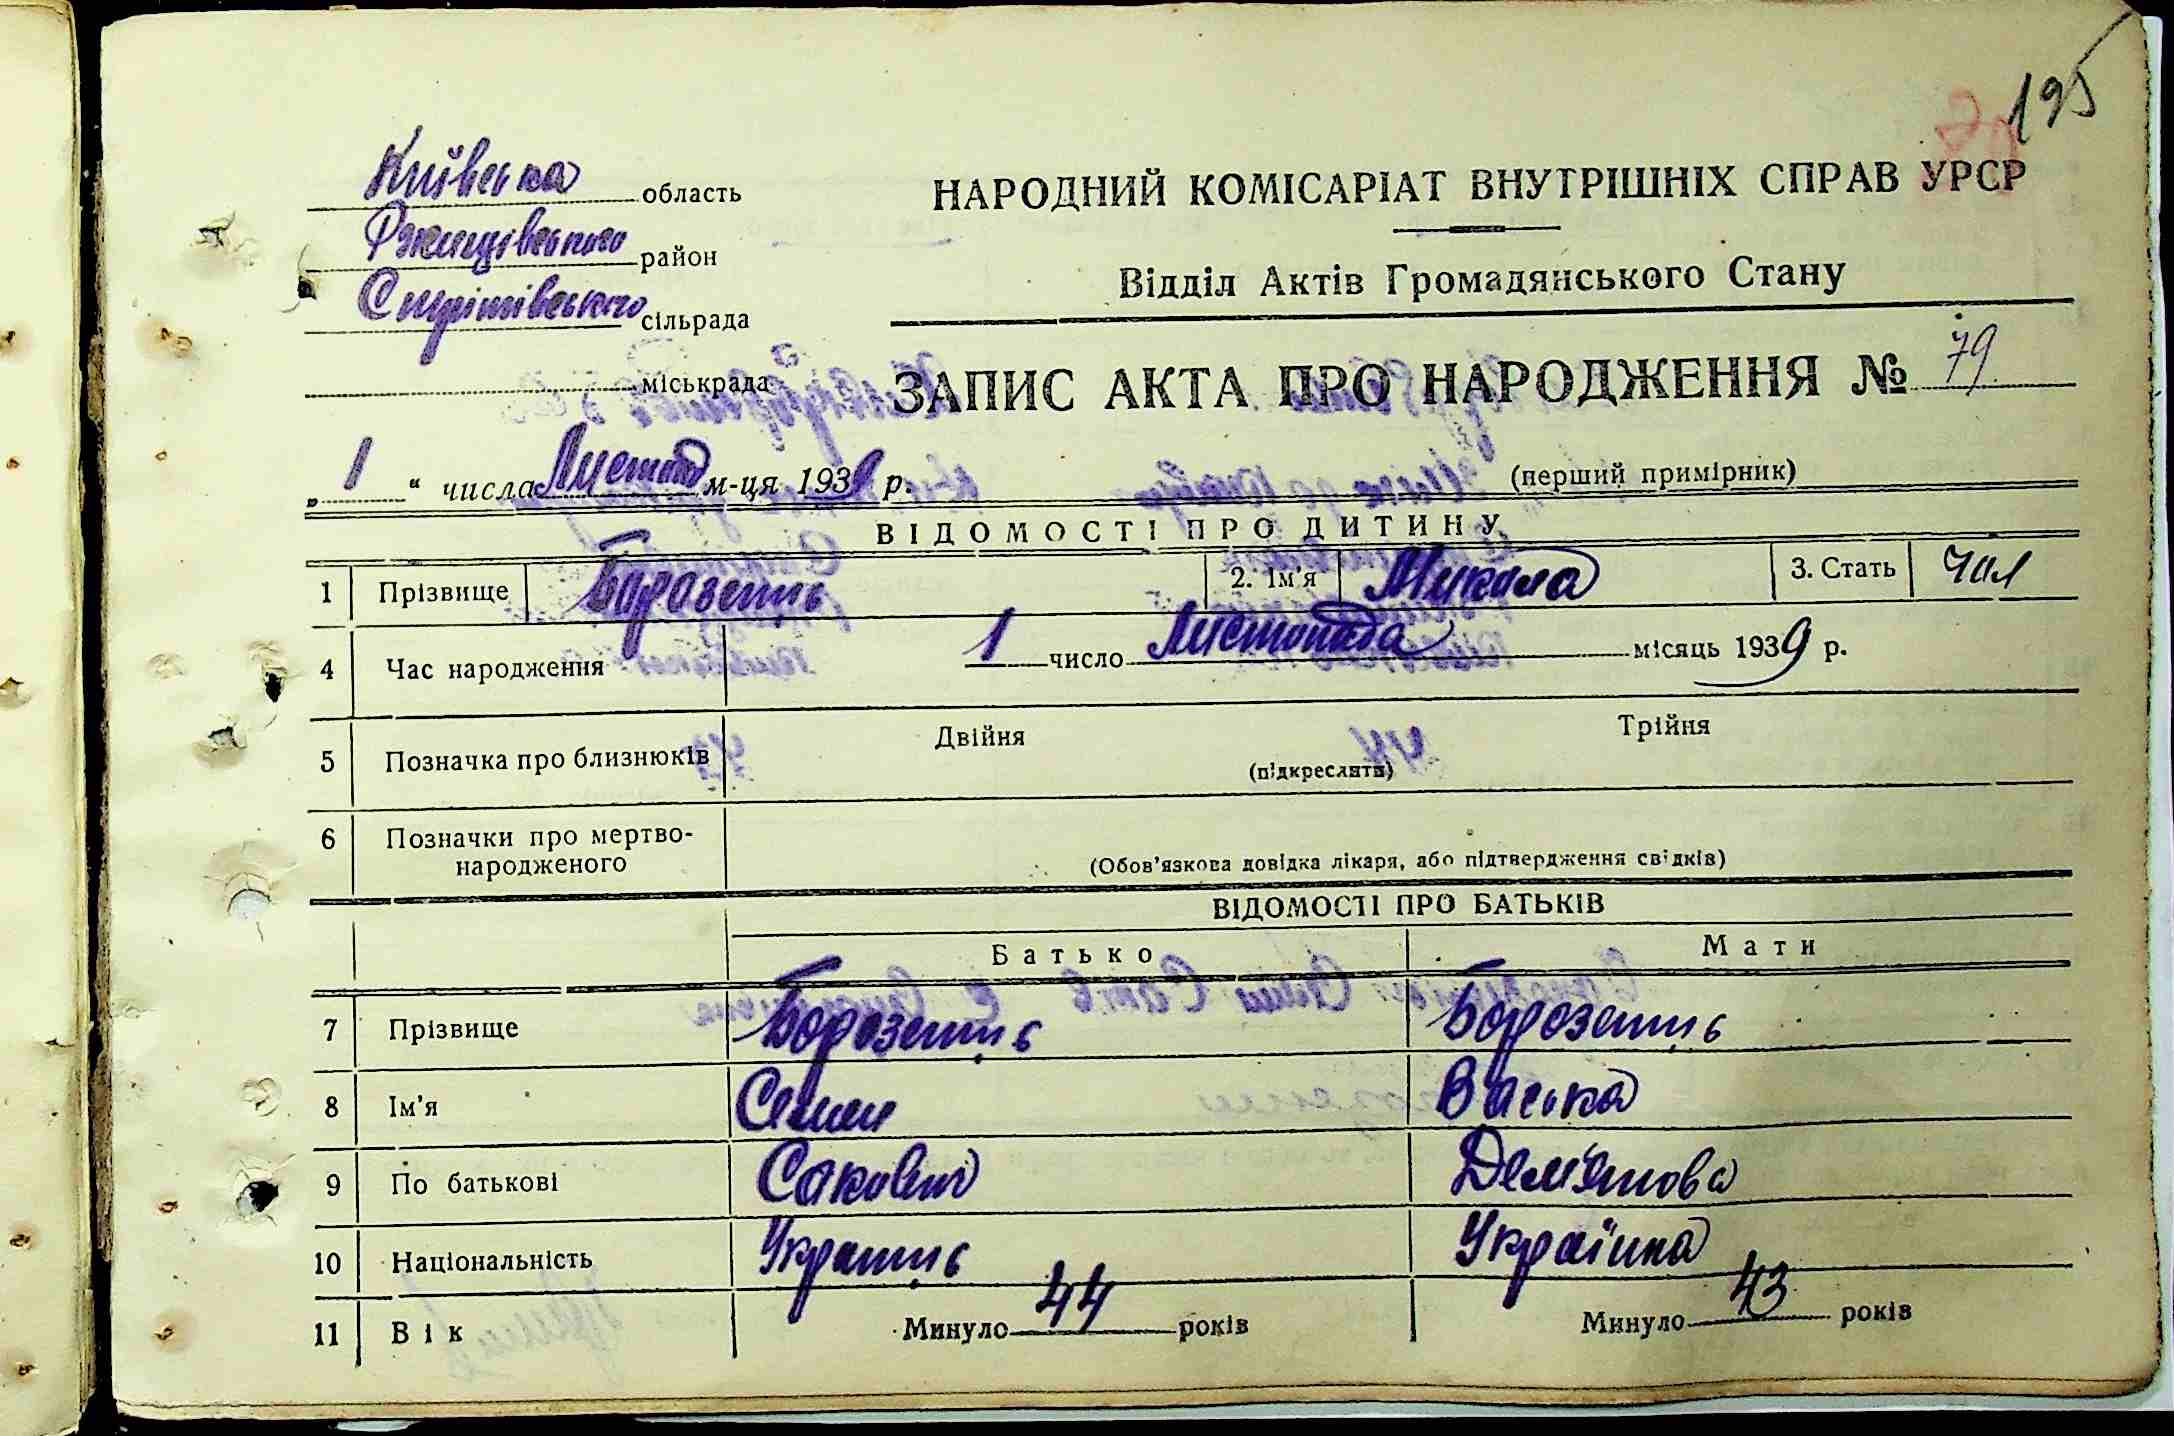 195
Київська область
Ржищівського район
сільрада
міськрада
НАРОДНИЙ КОМІСАРІАТ ВНУТРІШНІХ СПРАВ УРСР
Відділ Актів Громадянського Стану
ЗАПИС АКТА ПРО НАРОДЖЕННЯ № 79
„ 1 “ числа Листопад м-ця 1939 р.
(перший примірник)
ВІДОМОСТІ ПРО ДИТИНУ
1 Прізвище Борозенць 2. Ім'я Микола 3. Стать Чол
4 Час народження 1 число Листопада місяць 1939 р.
5 Позначка про близнюків Двійня Трійня
(підкреслити)
6 Позначки про мертво-
народженого
(Обов'язкова довідка лікаря, або підтвердження свідків)
ВІДОМОСТІ ПРО БАТЬКІВ
Батько Мати
7 Прізвище Борозенць Борозенць
8 Ім'я Семен Васька
9 По батькові Сакович Дем'янова
10 Національність Українць Українка
11 Вік Минуло 44 років Минуло 43 років